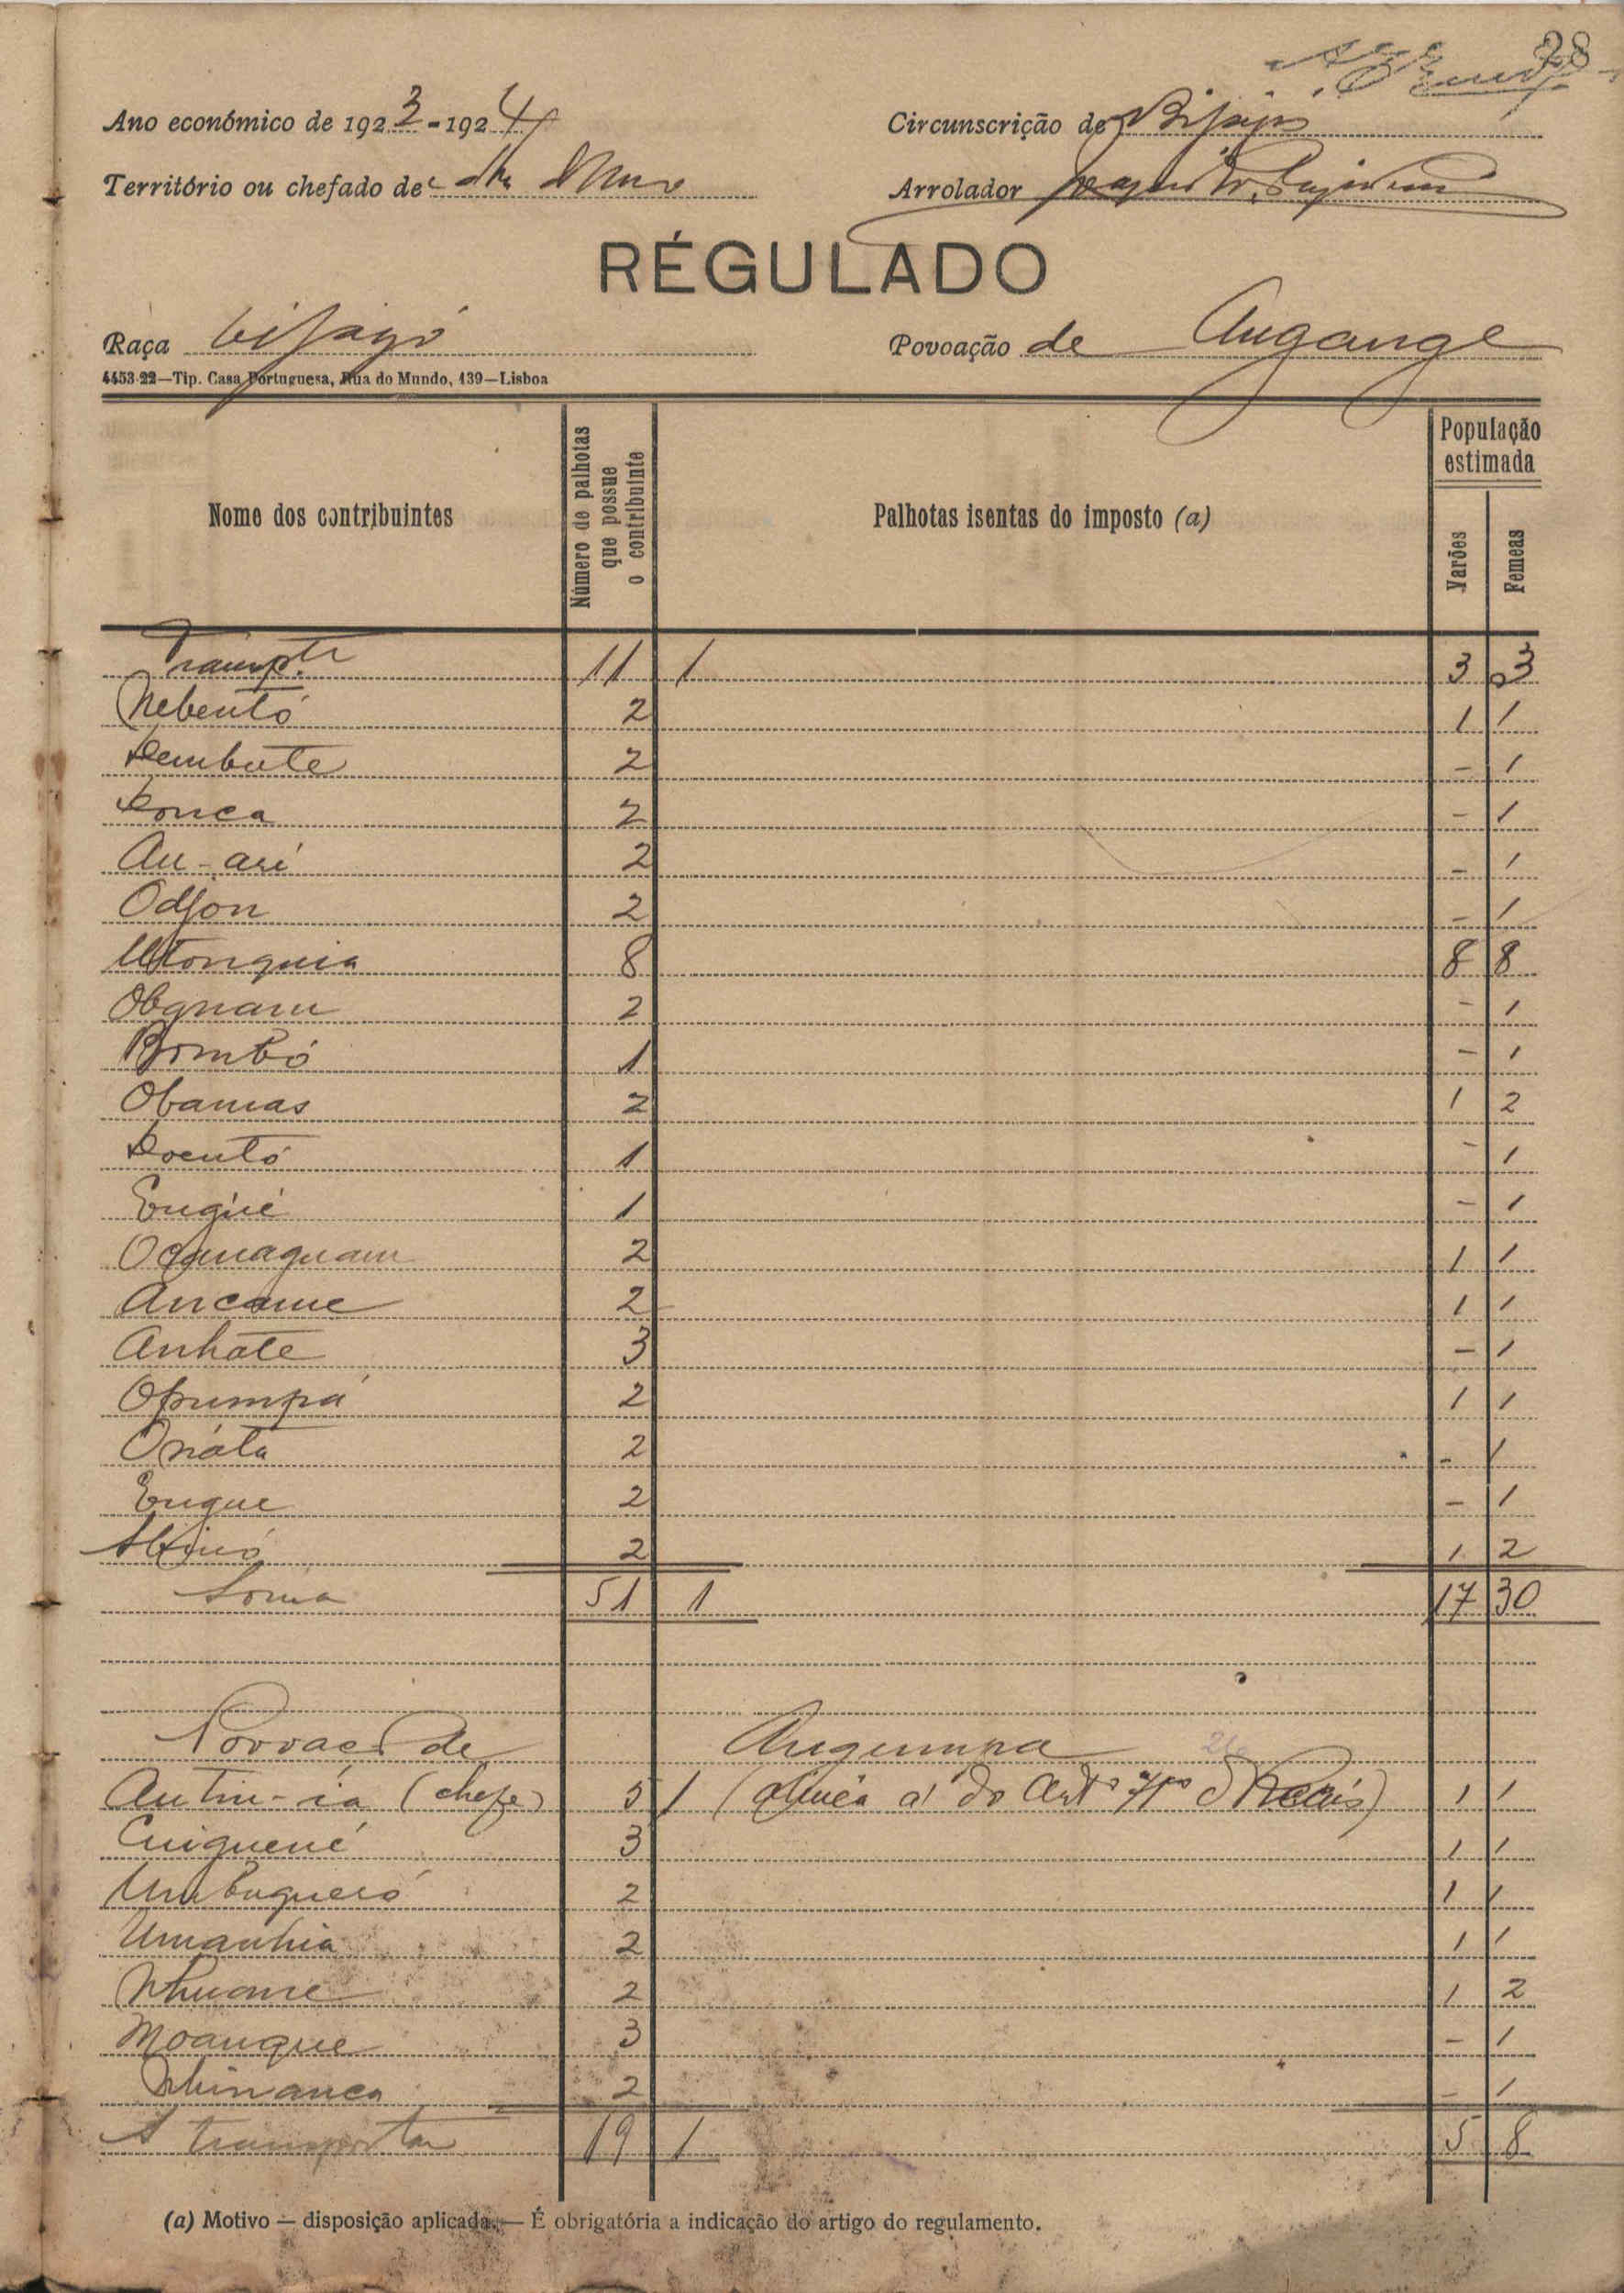 28
Ano económico de 1923-1924
Circunscrição de Bijagós
Território ou chefado de
Arrolador
RÉGULADO
Raça bijagó
Povoação de Angange
4453-22—Tip. Casa Portuguesa, Rua do Mundo, 139—Lisboa
Nome dos contribuintes
Número de palhotas que possue o contribuinte
Palhotas isentas do imposto (a)
População estimada
Varões
Femeas
Transpte 11 1 3 3
Nebentó 2 1 1
Dembute 2 - 1
Donca 2 - 1
Au-ari 2 - 1
Odjon 2 - 1
Utonguia 8 8 8
Obgnam 2 - 1
Bombó 1 - 1
Obamas 2 1 2
Docutó 1 - 1
Engüé 1 - 1
2 1 1
Ancame 2 1 1
Anhate 3 - 1
Opumpá 2 1 1
Onáta 2 - 1
Eugue 2 - 1
2 1 2
Soma 51 1 17 30
Povoação de Angumpa
Autim-iá (chefe) 5 1 (alinea a' do Artº 7º do) 1 1
Cuiguené 3 1 1
Umbugueró 2 1 1
Umanhia 2 1 1
Nhuame 2 1 2
Moangue 3 - 1
Nhinanca 2 - 1
A transportar 19 1 5 8
(a) Motivo — disposição aplicada. — É obrigatória a indicação do artigo do regulamento.